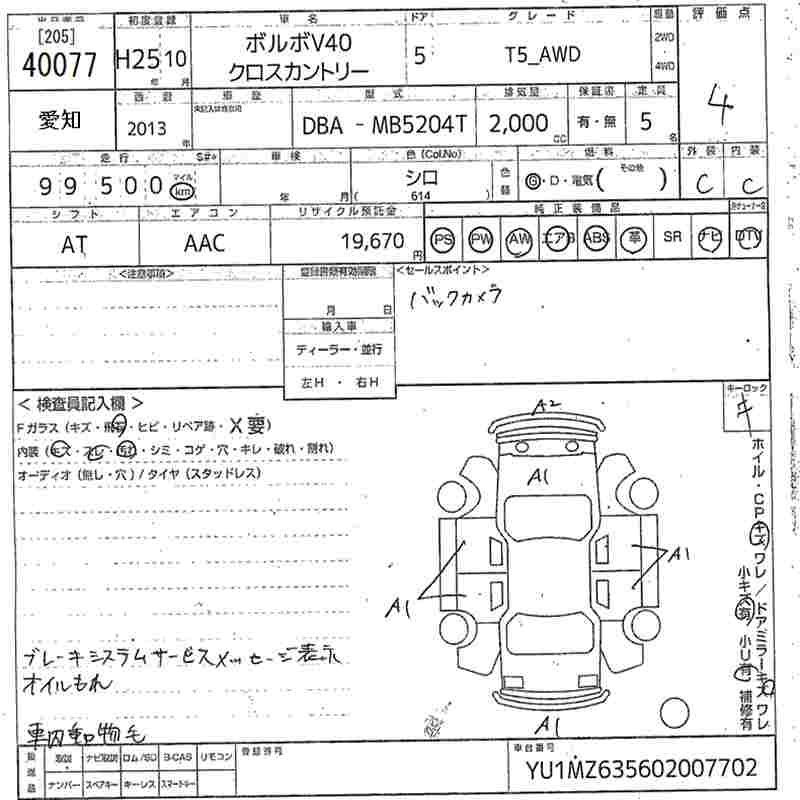 出品番号 初度登録 車名 ドア グレード 駆動 評価点
[205] 40077 H25 10 年 月 ボルボV40 クロスカントリー 5 T5_AWD 2WD 4WD 4
愛知 西暦 車歴 型式 排気量 保証書 定員
2013 年 DBA - MB5204T 2,000 CC 有・無 5 名
走行 S#* 車検 色(Col.No) 色替 燃料 外装 内装
99500 マイル km 年 月 シロ ( 614 ) G・D・電気( その他 ) C C
シフト エアコン リサイクル預託金 純正装備品
AT AAC 19,670 円 PS PW AW エアB ABS 革 SR ナビ DTV
<注意事項> 登録書類有効期限 <セールスポイント>
月 日 バックカメラ
輸入車
ディーラー・並行
左H ・ 右H
< 検査員記入欄 > キーロック
Fガラス (キズ・飛石・ヒビ・リペア跡・X要) キ
内装 (キズ・スレ・汚れ・シミ・コゲ・穴・キレ・破れ・割れ)
オーディオ (無し・穴) / タイヤ (スタッドレス)
A2
A1
A1
A1
A1
ホイル・CP キズ ワレ / ドアミラー キズ ワレ
小キズ有 小U有 補修有
ブレーキシステムサービスメッセージ表示
オイルもれ
車内動物毛
後送品 取説 ナビ取説 ロム/SD B-CAS リモコン 登録番号 車台番号
ナンバー スペアキー キーレス スマートキー YU1MZ635602007702